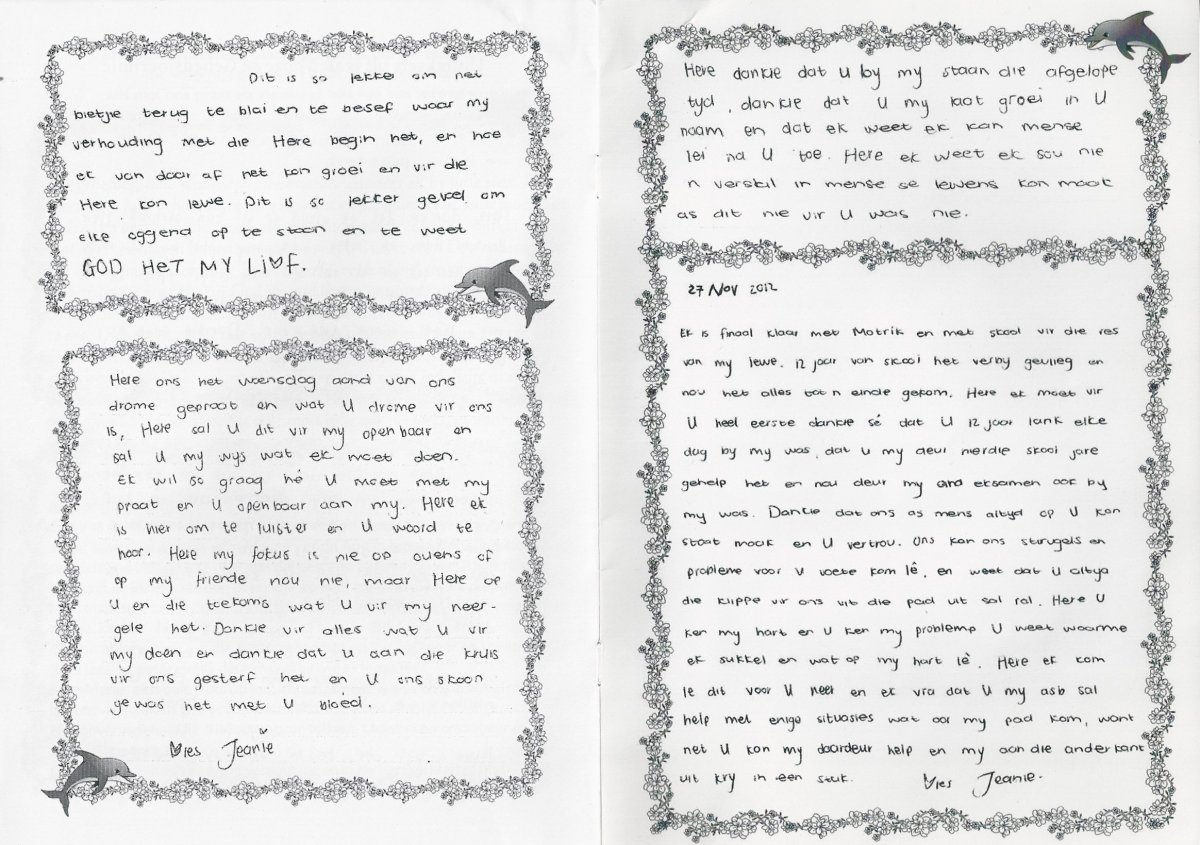 Dit is so lekke om net
bietjie terug te blai en te besef waar my
verhouding met die Here begin het, en hoe
ek van daar af net kon groei en vir die
Here kon lewe. Dit is so lekker gevoel om
elke oggend op te staan en te weet
GOD HET MY LIEF.
Here ons het woensdag aand van ons
drome gepraat en wat U drome vir ons
is, Here sal U dit vir my openbaar en
sal U my wys wat ek moet doen.
Ek wil so graag hê U moet met my
praat en U openbaar aan my. Here ek
is hier om te luister en U woord te
hoor. Here my fokus is nie op ouens of
op my friende nou nie, maar Here op
U en die toekoms wat U vir my neer-
gele het. Dankie vir alles wat U vir
my doen en dankie dat U aan die kruis
vir ons gesterf het en U ons skoon
gewas het met U bloed.
♥ies Jeanie
Here dankie dat U by my staan die afgelope
tyd, dankie dat U my laat groei in U
naam en dat ek weet ek kan mense
lei na U toe. Here ek weet ek sou nie
'n verskil in mense se lewens kon maak
as dit nie vir U was nie.
27 Nov 2012
Ek is finaal klaar met Matrik en met skool vir die res
van my lewe. 12 jaar van skool het verby gevlieg en
nou het alles tot n einde gekom. Here ek moet vir
U heel eerste dankie sê dat U 12 jaar lank elke
dag by my was, dat U my deur hierdie skool jare
gehelp het en nou deur my eksamen ook by
my was. Dankie dat ons as mens altyd op U kan
staat maak en U vertrou. Ons kan ons strugels en
probleme voor U voete kom lê, en weet dat U altyd
die klippe vir ons uit die pad uit sal rol. Here U
ken my hart en U ken my probleme U weet waarme
ek sukkel en wat op my hart lê. Here ek kom
le dit voor U neer en ek vra dat U my asb sal
help met enige situasies wat oor my pad kom, want
net U kan my daardeur help en my aan die anderkant
uit kry in een stuk. ♥ies Jeanie.